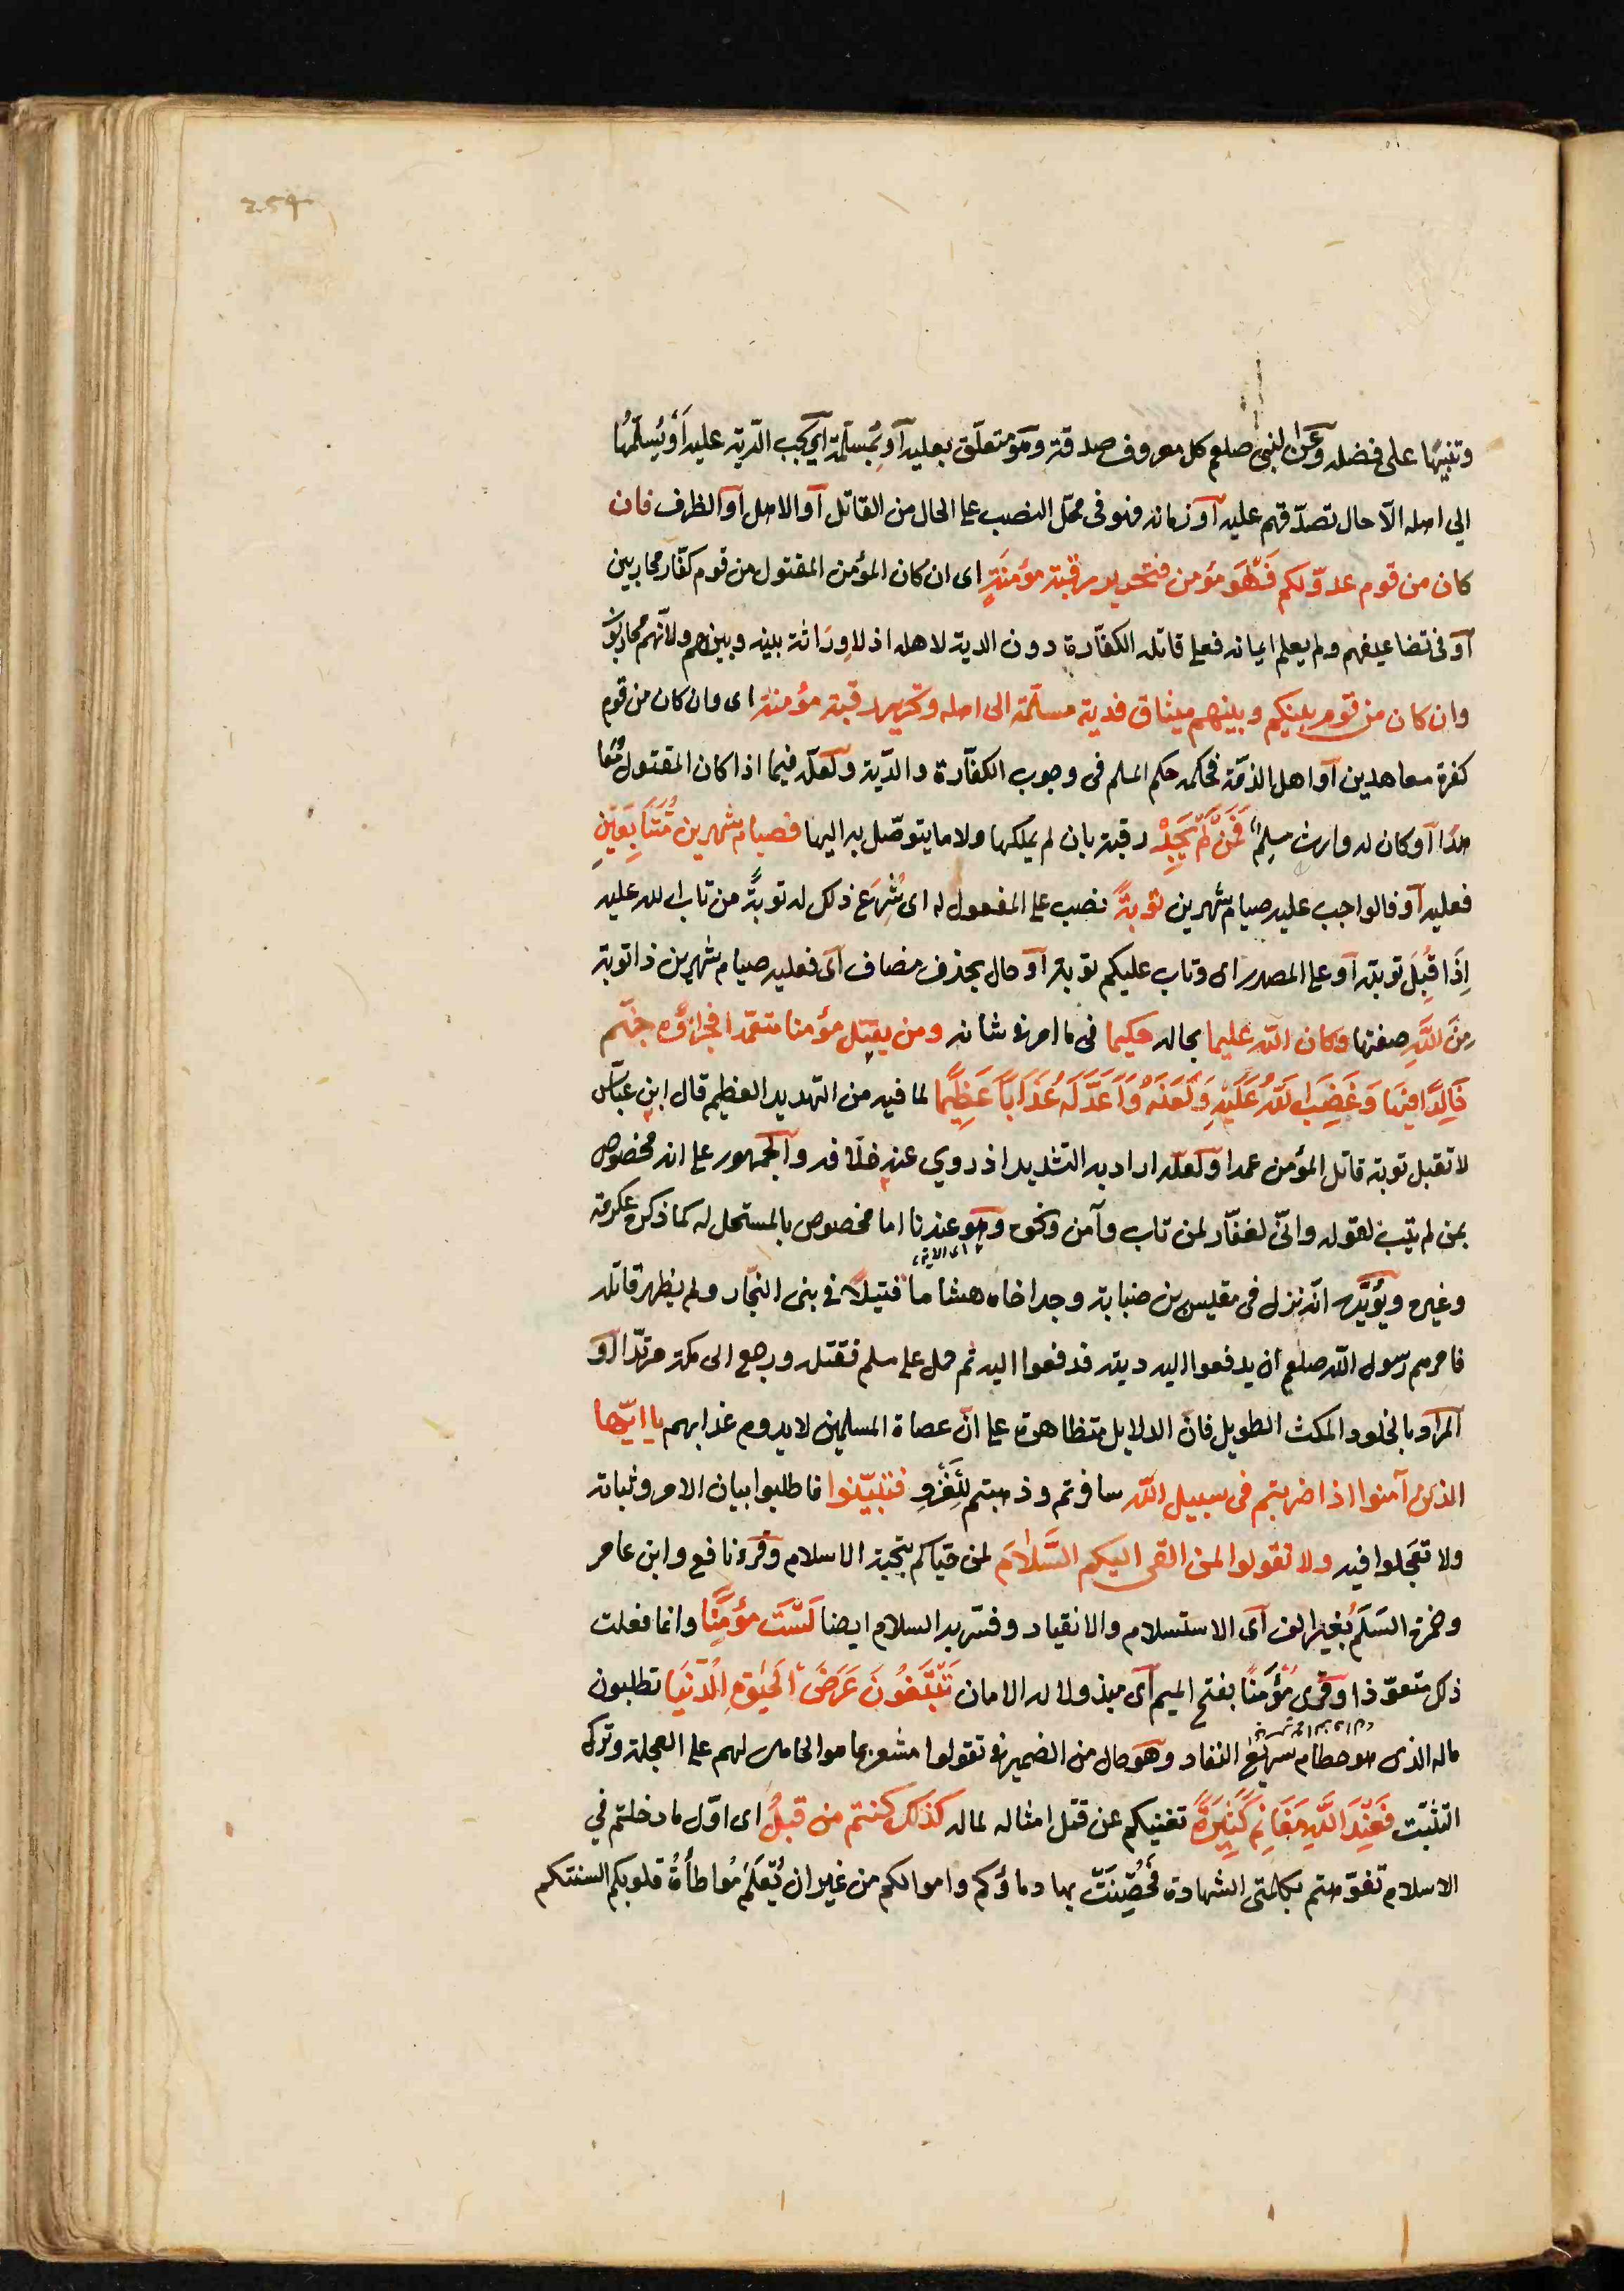 2.54
وتنبيها على فضله وعن النبى صلعم كل معروف صدقة وهو متعلق بعليه أو بمسلمة اى يجب الدية عليه أو يسلمها
الى اهله الا حال تصدقهم عليه أو زمانه فهو فى محل النصب على الحال من القاتل أو الاهل أو الظرف فان
كان من قوم عدو لكم فَهُوَ مؤمن فتحرير رقبة مؤمنةٍ اى ان كان المؤمن المقتول من قوم كفّار محاربين
أو فى تضاعيفهم ولم يعلم ايمانه فعلى قاتله الكفّارة دون الدية لاهله اذ لا وِرَاثة بينه وبينهم ولانّهم محاربون
وان كان من قوم بينكم وبينهم ميثاق فدية مسلّمة الى اهله وتحرير رقبة مؤمنة اى وان كان من قوم
كفرة معاهدين أو اهل الذمّة فحكمه حكم المسلم فى وجوب الكفّارة والدّية ولعلّه فيما اذا كان المقتول معا
هدًا أو كان له وارث مسلم فَمَن لَّمْ يَجِدْ رقبة بان لم يملكها ولا ما يتوصّل به اليها فصيام شهرين مُتَتَابِعَيْنِ
فعليه أو فالواجب عليه صيام شهرين توبةً نصب على المفعول له اى شُرِعَ ذلك له توبةً من تاب الله عليه
اِذَا قَبِلَ توبته أو على المصدر اى وتاب عليكم توبة أو حال بحذف مضاف اى فعليه صيام شهرين ذا توبة
مِنَ اللَّهِ صفتها وكان اللّه عليما بحاله حكيما فى ما امر فى شانه ومن يقتل مؤمنا متعمّدا فجزاؤه جهنّم
خَالِدًا فِيهَا وَغَضِبَ اللَّهُ عَلَيْهِ وَلَعَنَهُ وَأَعَدَّ لَهُ عَذَابًا عَظِيمًا لما فيه من التهديد العظيم قال ابن عبّاس
لا تقبل توبة قاتل المؤمن عمدا ولعلّه اراد به التشديد اذ روي عنه خلافه والجمهور على انه مخصوص
بمن لم يتب لقوله وانّى لغفّار لمن تاب وآمن ونحوه وهو عندنا اما مخصوص بالمستحل له كما ذكره عكرمة
اى الآية
وغيره ويؤيّده انّه نزل فى مقيس بن ضبابة وجد اخاه هشاما قتيلاً فى بنى النجّار ولم يظهر قاتله
فامرهم رسول اللّه صلعم ان يدفعوا اليه ديته فدفعوا اليه ثم حمل على مسلم فقتله ورجع الى مكة مرتدّا أو
المراد بالخلود المكث الطويل فانّ الدلايل متظاهرة على انّ عصاة المسلمين لا يدوم عذابهم يا ايّها
الذين آمنوا اذا ضربتم فى سبيل اللّه سافرتم وذهبتم للغزو فتبيّنوا فاطلبوا بيان الامر وثباته
ولا تعجلوا فيه ولا تقولوا لمن القى اليكم السَّلامَ لمن حيّاكم بتحية الاسلام وقرء نافع وابن عامر
وحمزة السَلَمَ بغير الف اى الاستسلام والانقياد وفسّر به السلام ايضا لَسْتَ مؤمِنًا وانما فعلت
ذلك متعوّذا وقرى مُؤمَنًا بفتح الميم اى مبذولا له الامان تَبْتَغُونَ عَرَضَ الْحَيٰوةِ الدُّنْيَا تطلبون
ماله الذى هو حطام سريع النفاد وهو حال من الضمير فى تقولوا مشعر بما هو الحامل لهم على العجلة وترك
التثبّت فَعِنْدَ اللَّهِ مَغَانِمُ كَثِيرَةٌ تغنيكم عن قتل امثاله لماله كذلك كنتم من قبلُ اى اوّل ما دخلتم في
الاسلام تفوّهتم بكلمتى الشهادة فحُصِّنَتْ بها دماؤكم واموالكم من غير ان يُعْلَم مُواطأةُ قلوبكم السنتكم